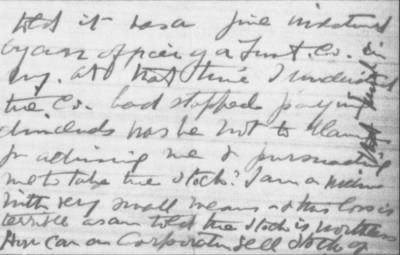 told it was a fine investment
by an officer of a Trust. Co. in
my. At that time I understand
the Co. had stopped paying
dividends was he not to blame
for advising me & persuading
me to take the stock? I am a
with very small means & this loss is
terrible as am told the stock is worthless
How can an Corporation sell stock of